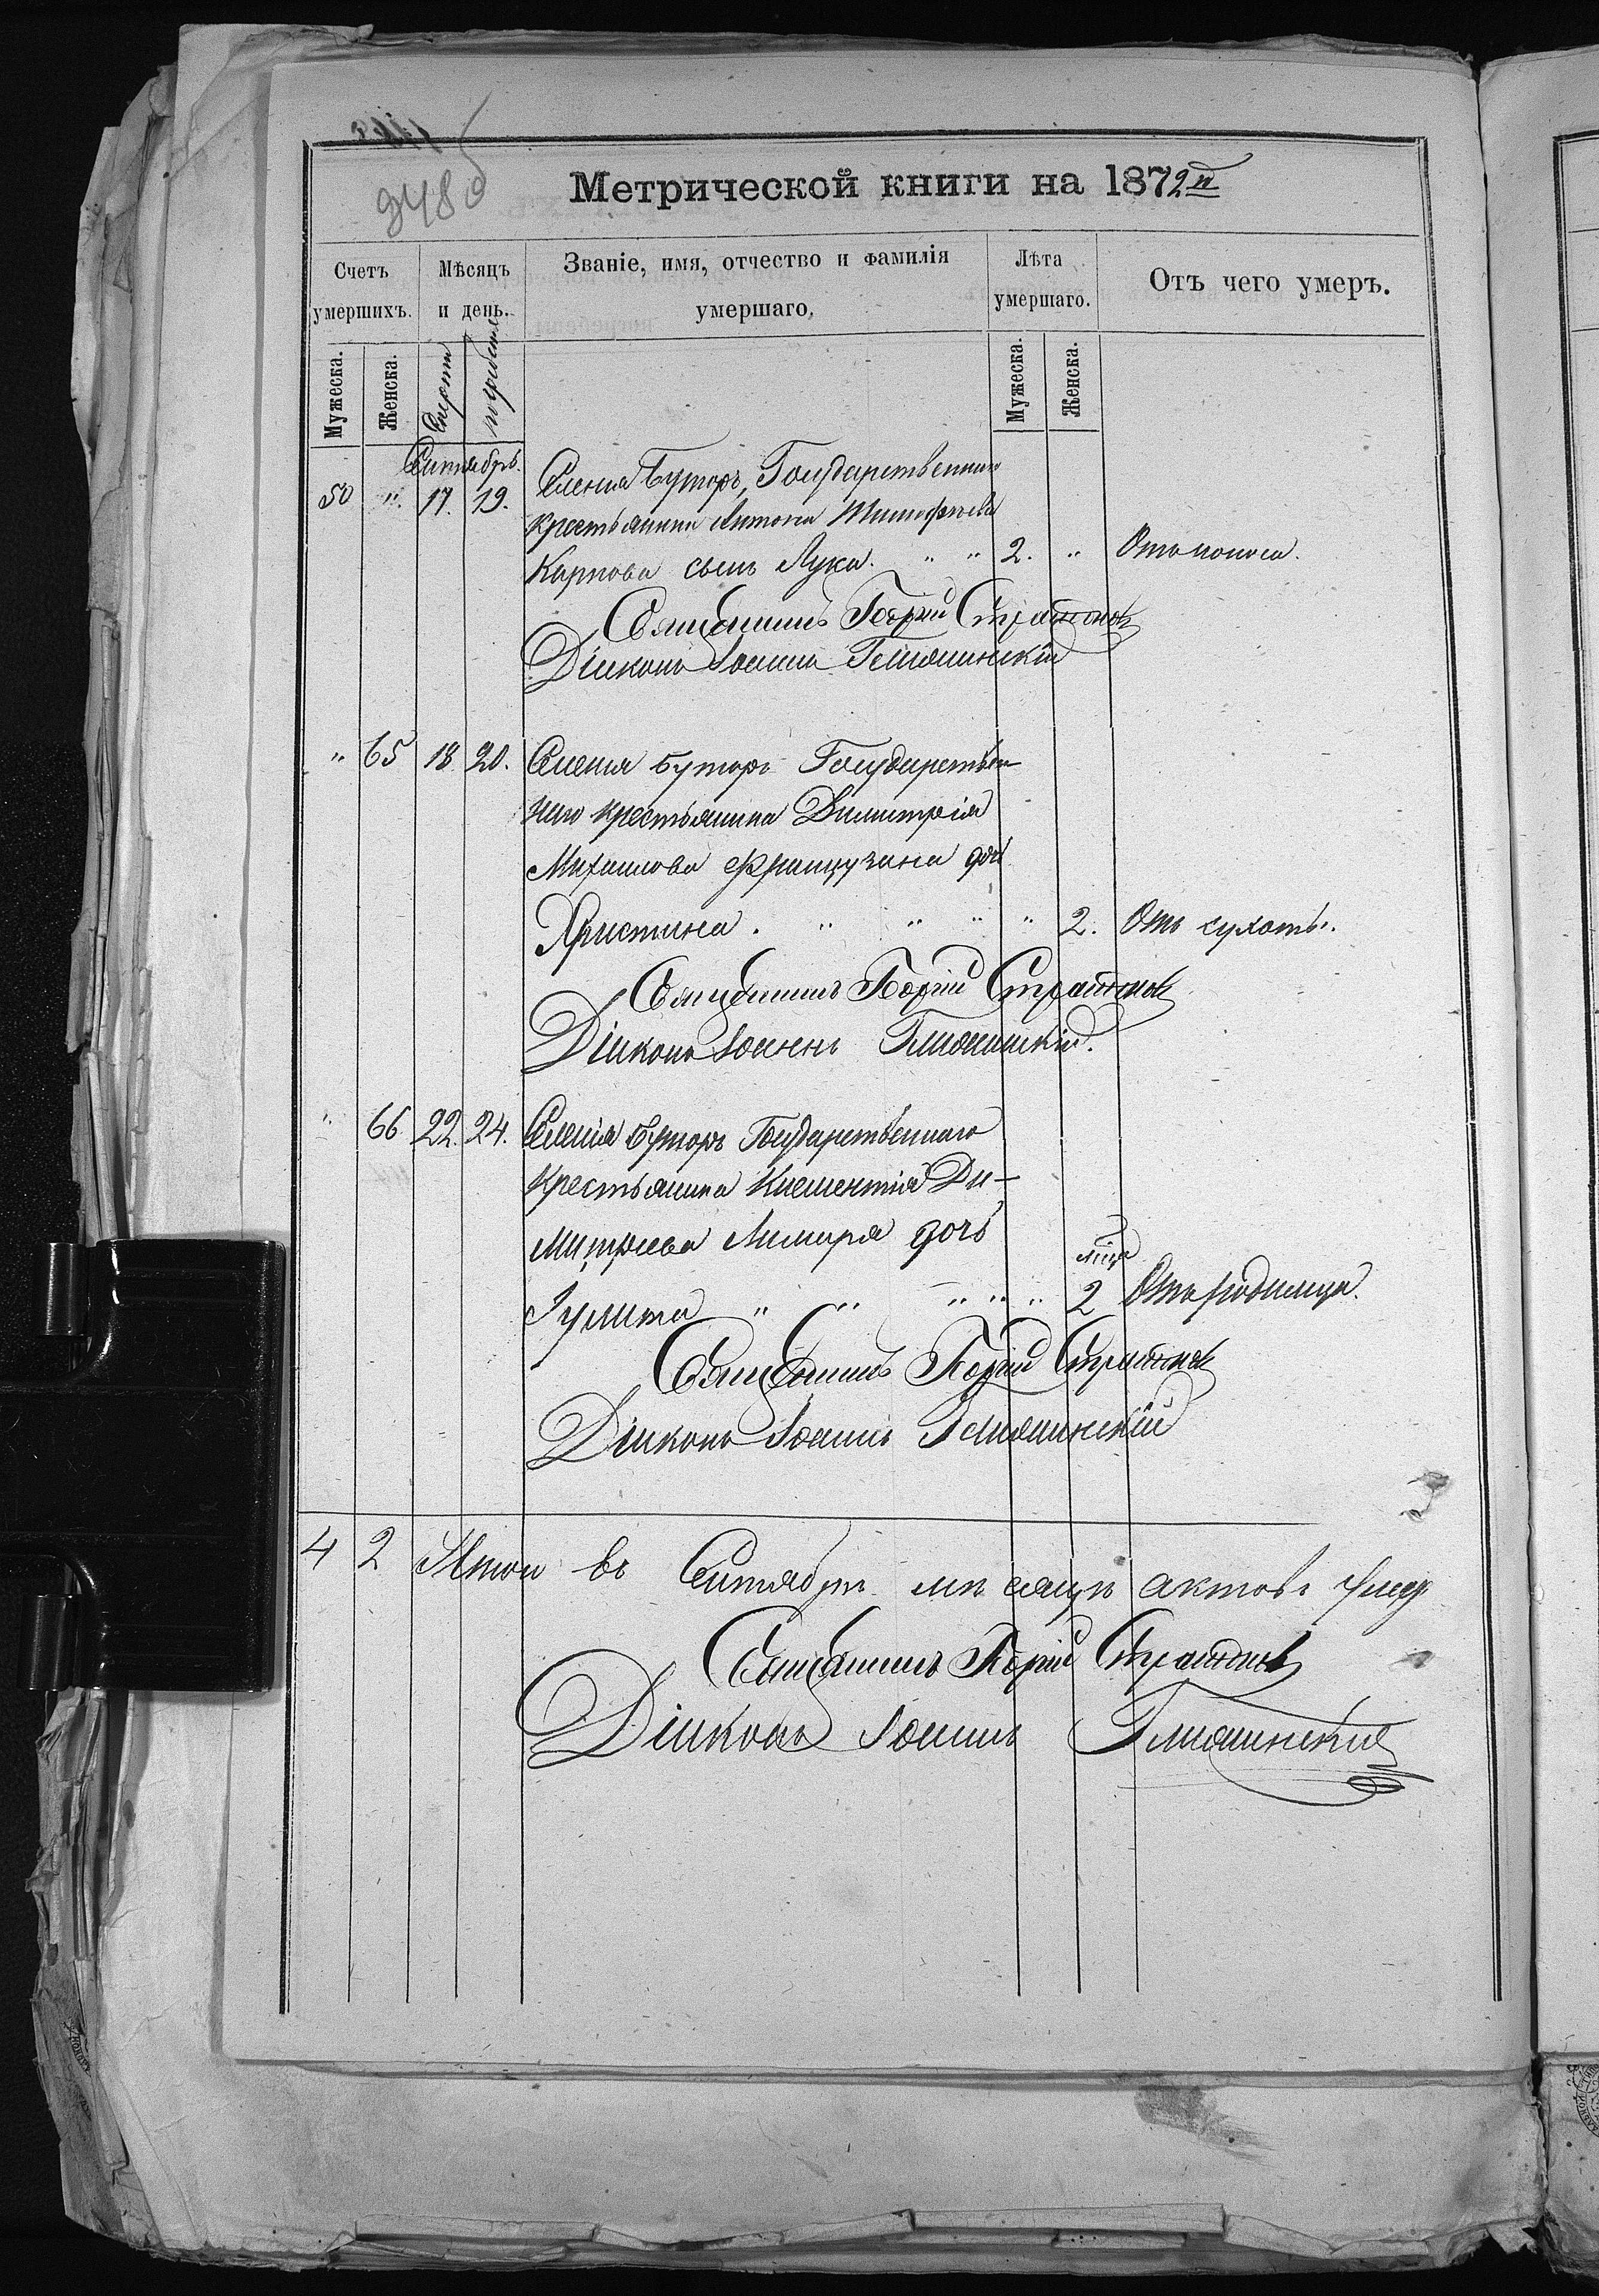 948 об
Метрической книги на 1872й
Счетъ умершихъ. Мѣсяцъ и день. Званіе, имя, отчество и фамилія умершаго, Лѣта умершаго. Отъ чего умеръ.
Мужеска. Женска. Смерти погребенія Мужеска. Женска.
Сентябрь.
50 " 17. 19. Селенія Буторъ, Государственнаго
крестьянина Антона Тимофѣева
Карпова сынъ Лука. " " 2. " Отъ поноса.
Священникъ Георгій
Діаконъ Іоаннъ
" 65 18 20. Селенія Буторъ Государствен-
наго крестьянина Димитрія
Михаилова Французана дочь
Христина. " " " " 2. Отъ сухоты.
Священникъ Георгій
Діаконъ Іоаннъ
" 66 22. 24. Селенія Буторъ Государственнаго
крестьянина Климентія Ди-
митріева дочь
Іулита " " " " " 2 мѣся Отъ родимца.
Священникъ Георгій
Діаконъ Іоаннъ
4 2 Итого въ Сентябрѣ мѣсяцѣ актовъ
Священникъ Георгій
Діаконъ Іоаннъ